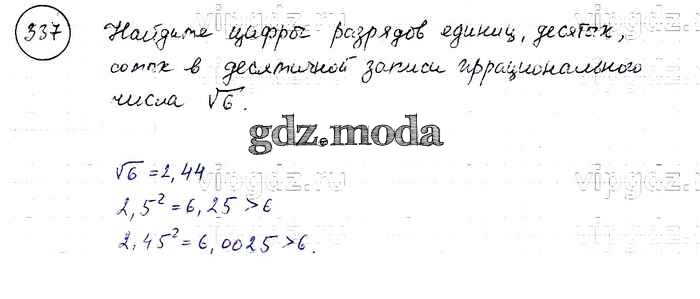 337
Найдите цифры разрядов единиц, десятых,
сотых в десятичной записи иррационального
числа √6.
gdz.moda
√6 = 2,44
vipgdz.ru
2,5² = 6,25 > 6
2,45² = 6,0025 > 6.